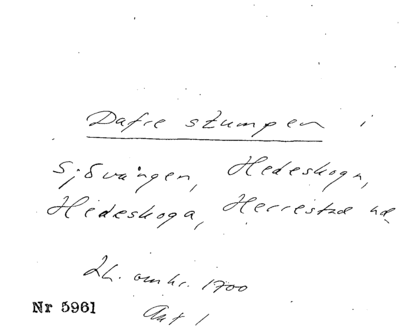 Dafre stumpen i
Sjövången, Hedeskoga,
Hedeskoga, Herrestad hd
Lh. omkr. 1700
Ant 1
Nr 5961